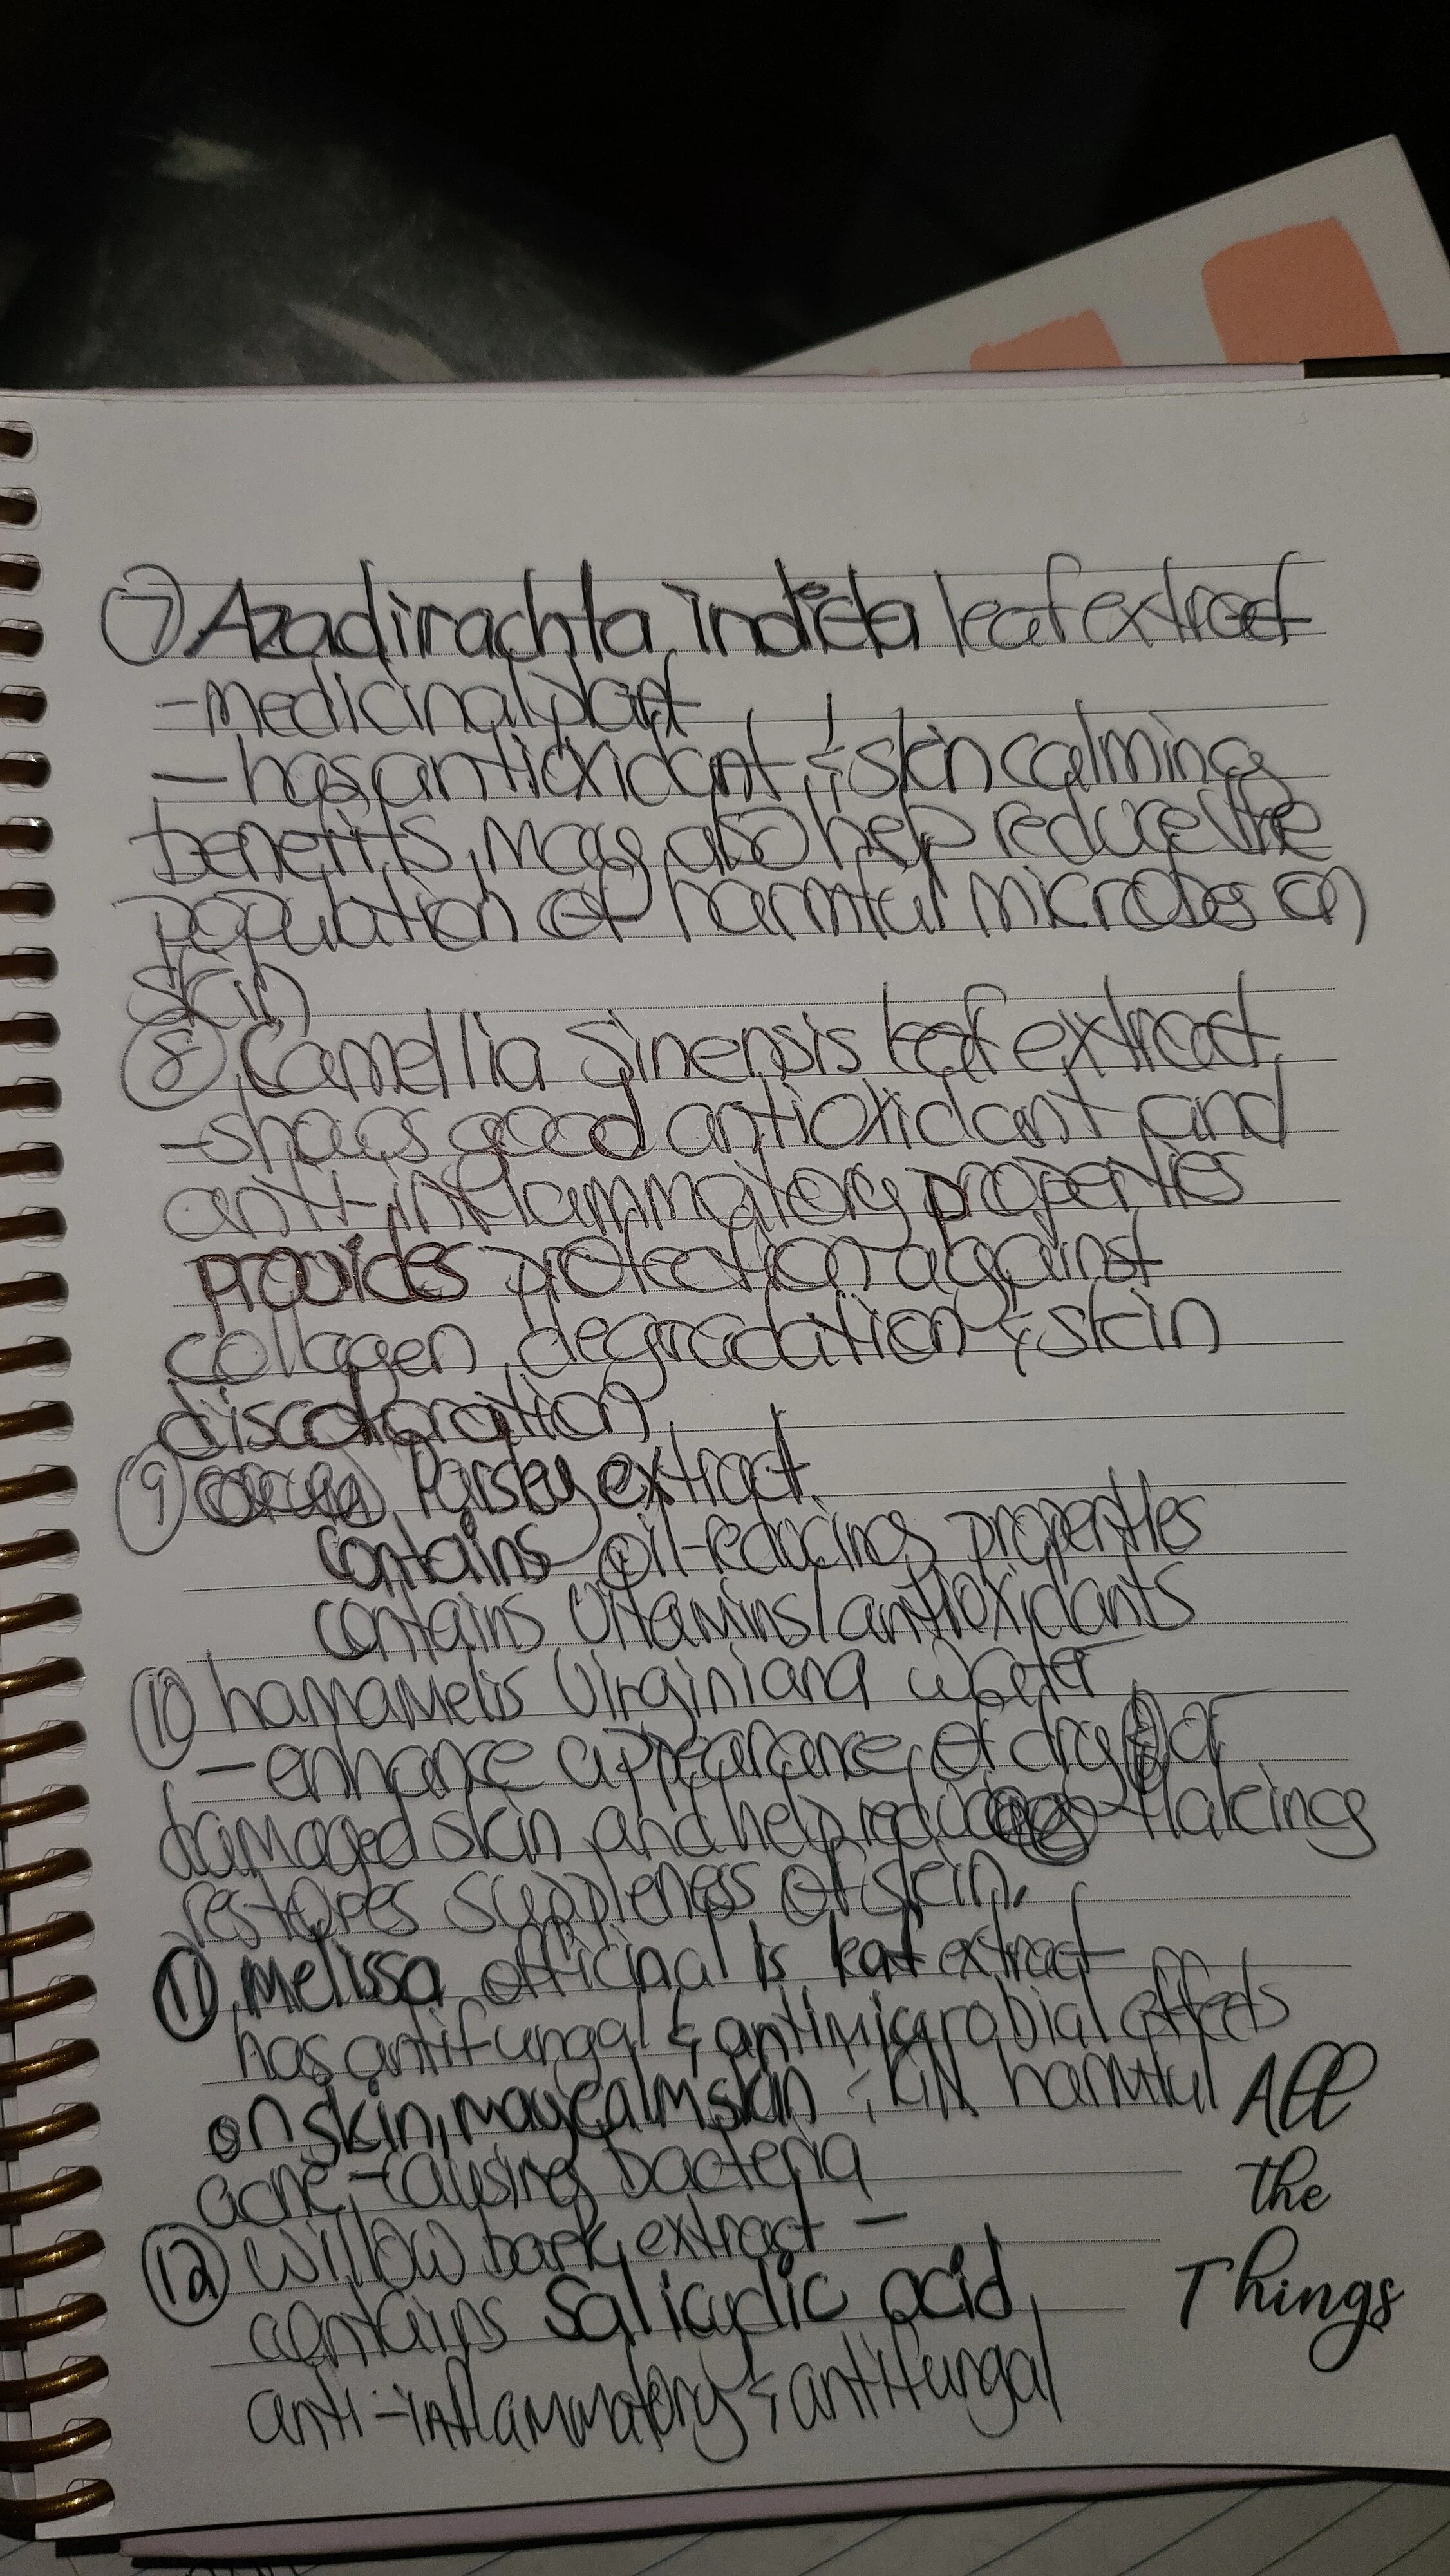 ⑦ Azadirachta indica leaf extract
- medicinal plant
- has antioxidant & skin calming
benefits, may also help reduce the
population of harmful microbes on
skin
⑧ Camellia Sinensis leaf extract
- shows good antioxidant and
anti-inflammatory properties
provides protection against
collagen degradation & skin
discoloration
⑨ Parsley extract
contains oil-reducing properties
contains vitamins/antioxidants
⑩ hamamelis Virginiana water
- enhance appearance of dry or
damaged skin and help reduce flaking
restores suppleness of skin.
⑪ Melissa officinalis leaf extract
has antifungal & antimicrobial effects
on skin, may calm skin & kill harmful
acne-causing bacteria
⑫ Willow bark extract -
contains Salicylic acid,
anti-inflammatory & antifungal
All
the
Things